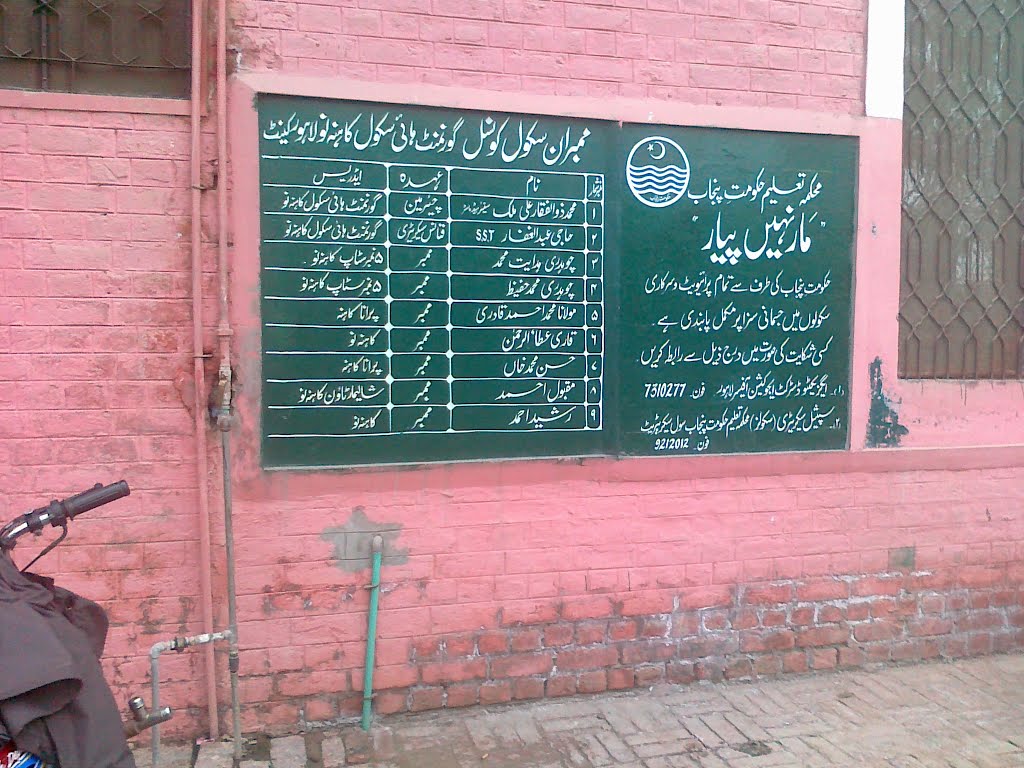 ممبران سکول کونسل گورنمنٹ ہائی سکول کاہنہ نو لاہور کینٹ
نمبر شمار نام عہدہ ایڈریس
۱ محمد ذوالفقار علی ملک چیئرمین گورنمنٹ ہائی سکول کاہنہ نو
۲ حاجی عبدالغفار S.S.T فنانس سیکریٹری گورنمنٹ ہائی سکول کاہنہ نو
۳ چوہدری ہدایت محمد ممبر ۵ نمبر سٹاپ کاہنہ نو۔
۴ چوہدری محمد حفیظ ممبر ۵ نمبر سٹاپ کاہنہ نو
۵ مولانا محمد احمد قادری ممبر پرانا کاہنہ
۶ قاری عطاء الرحمٰن ممبر کاہنہ نو
۷ حسن محمد خاں ممبر پرانا کاہنہ
۸ مقبول احمد ممبر شالیمار ٹاؤن کاہنہ نو
۹ رشید احمد ممبر کاہنہ نو
محکمہ تعلیم حکومت پنجاب
"مار نہیں پیار"
حکومت پنجاب کی طرف سے تمام پرائیویٹ و سرکاری
سکولوں میں جسمانی سزا پر مکمل پابندی ہے۔
کسی شکایت کی صورت میں درج ذیل سے رابطہ کریں
۱۔ ایگزیکٹو ڈسٹرکٹ ایجوکیشن آفیسر لاہور فون۔ 7310277
۲۔ سپیشل سیکریٹری (سکولز) محکمہ تعلیم حکومت پنجاب سول سیکریٹریٹ
فون۔ 9212012